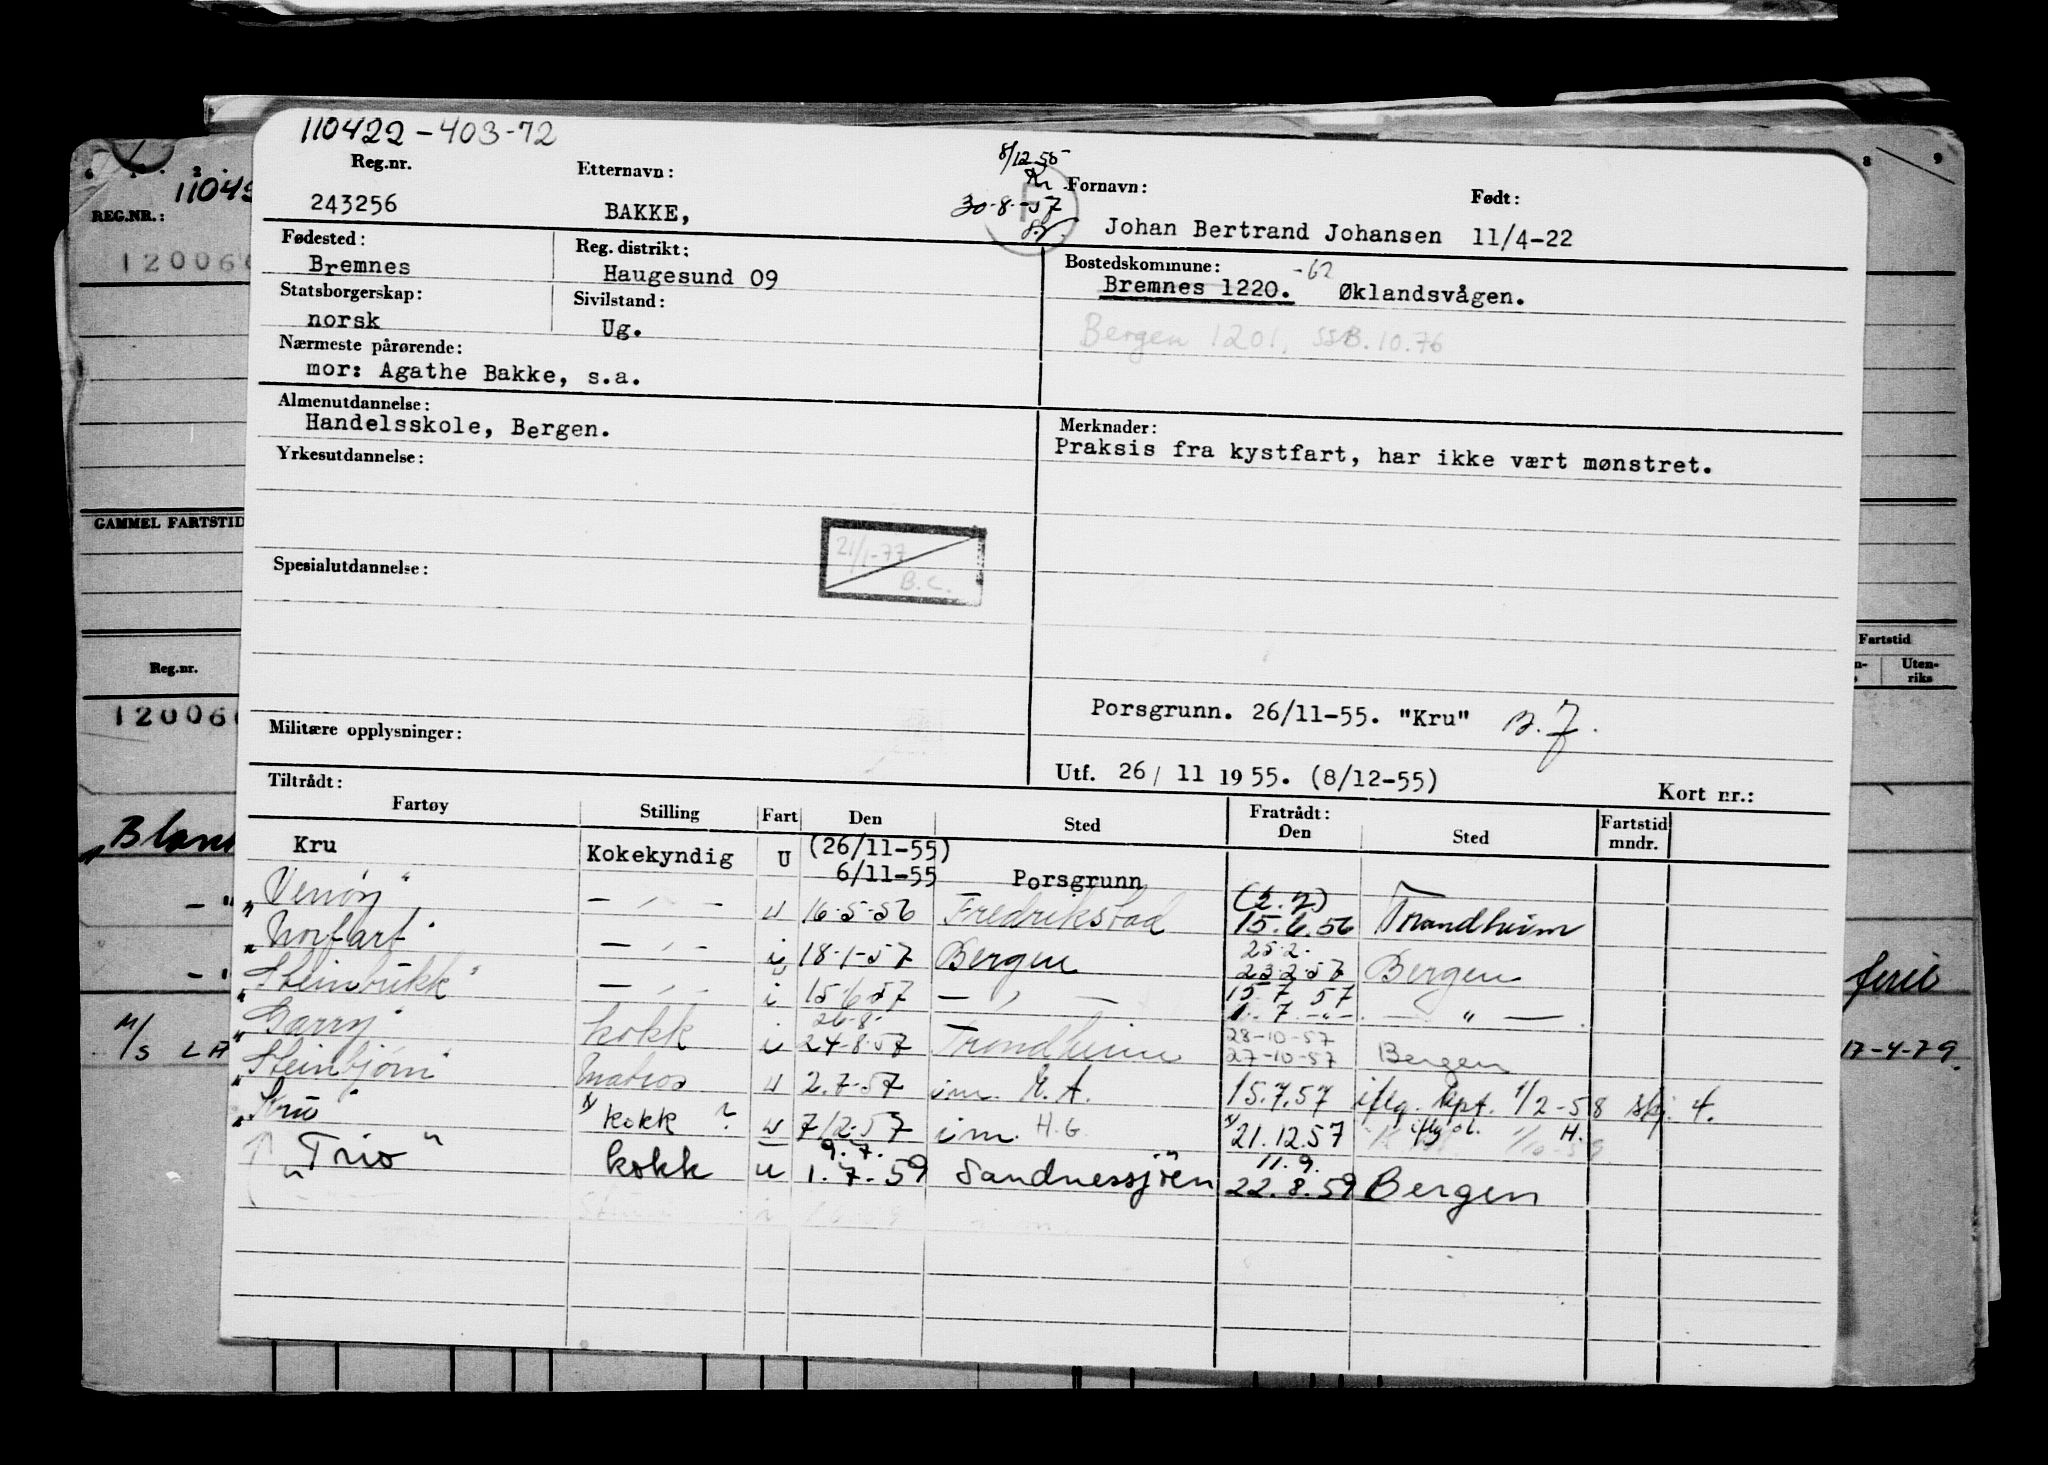 110422-403-72
Reg.nr. Etternavn: 8/12 55 Fornavn: Født:
243256 BAKKE, 30-8-57 Johan Bertrand Johansen 11/4-22
Fødested: Reg. distrikt: Bostedskommune:
Bremnes Haugesund 09 Bremnes 1220. -62 Øklandsvågen.
Statsborgerskap: Sivilstand:
norsk Ug. Bergen 1201, SSB.10.76
Nærmeste pårørende:
mor: Agathe Bakke, s.a.
Almenutdannelse: Merknader:
Handelsskole, Bergen. Praksis fra kystfart, har ikke vært mønstret.
Yrkesutdannelse:
21/1-77
B.C.
Spesialutdannelse:
Porsgrunn. 26/11-55. "Kru"
Militære opplysninger:
Utf. 26/ 11 1955. (8/12-55) Kort nr.:
Tiltrådt: Fratrådt:
Fartøy Stilling Fart Den Sted Den Sted Fartstid mndr.
Kru Kokekyndig U (26/11-55)
6/11-55 Porsgrunn (2.7)
— " — u 16-5-56 Fredrikstad 15.6.56 Trondheim
25.2.
"Norfart" — " — i 18-1-57 Bergen 23.2.57 Bergen
15 7 57
"Steinbukk" — " — i 15-6-57 — " — 1. 7. -"- — " —
26-8- 28-10-57
"Garry" kokk i 24-8-57 Trondheim 27-10-57 Bergen
"Steinbjørn" Matros u 2.7-57 im. 15.7.57 iflg. kpt. 1/2-58 skj. 4.
"Kru" kokk ? u 7/12-57 im. H.G. 21.12.57
9.7. 11.9.
"Trio" kokk u 1.7.59 Sandnessjöen 22.8.59 Bergen
REG.NR.:
120060
GAMMEL FARTSTID
Reg.nr.
120060
Fartstid
Uten-
riks
ferie
M/S LA
17-4-79.